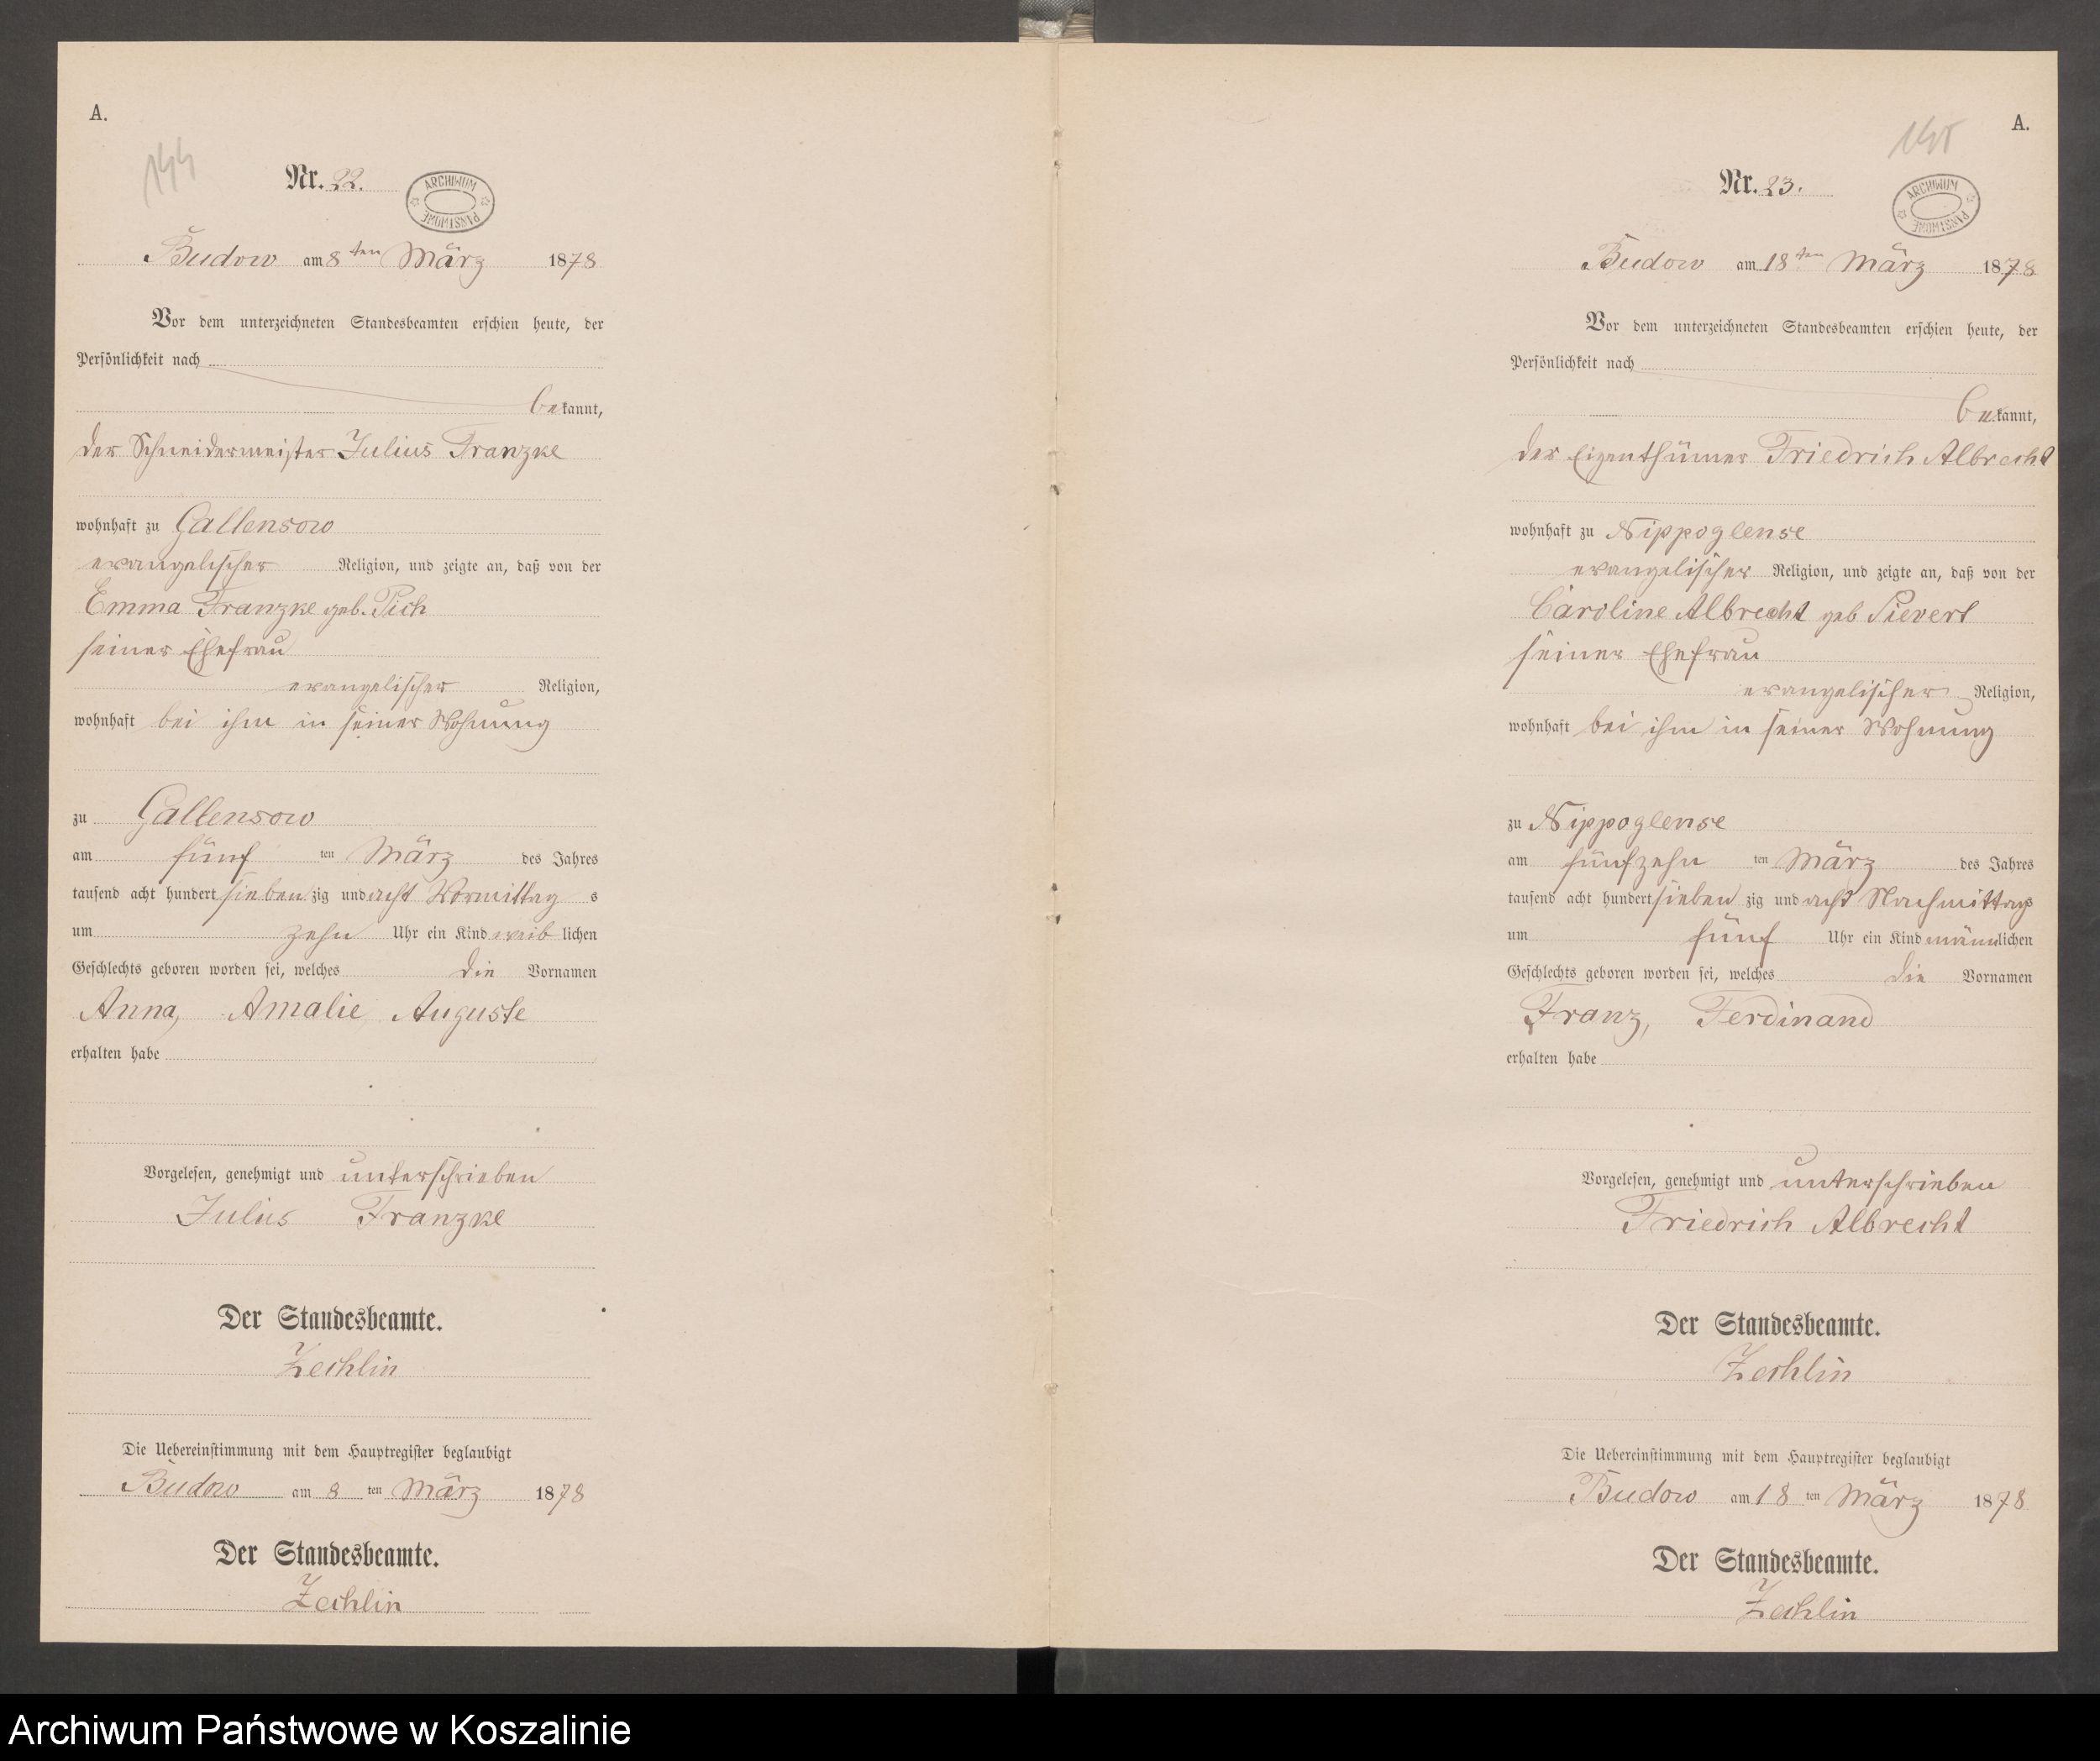 A.
144
Nr. 22.
ARCHIWUM PAŃSTWOWE
Budow am 8ten März 1878
Vor dem unterzeichneten Standesbeamten erschien heute, der
Persönlichkeit nach
bekannt,
der Schneidermeister Julius Franzke
wohnhaft zu Gallensow
evangelischer Religion, und zeigte an, daß von der
Emma Franzke geb. Pich
seiner Ehefrau
evangelischer Religion,
wohnhaft bei ihm in seiner Wohnung
zu Gallensow
am fünf ten März des Jahres
tausend acht hundert siebenzig und acht Vormittag s
um zehn Uhr ein Kind weiblichen
Geschlechts geboren worden sei, welches die Vornamen
Anna, Amalie Auguste
erhalten habe
Vorgelesen, genehmigt und unterschrieben
Julius Franzke
Der Standesbeamte.
Zechlin
Die Uebereinstimmung mit dem Hauptregister beglaubigt
Budow am 8 ten März 1878
Der Standesbeamte.
Zechlin
A.
145
Nr. 23.
ARCHIWUM PAŃSTWOWE
Budow am 18ten März 1878
Vor dem unterzeichneten Standesbeamten erschien heute, der
Persönlichkeit nach
bekannt,
der Eigenthümer Friedrich Albrecht
wohnhaft zu Nippoglense
evangelischer Religion, und zeigte an, daß von der
Caroline Albrecht geb Sievert
seiner Ehefrau
evangelischer Religion,
wohnhaft bei ihm in seiner Wohnung
zu Nippoglense
am fünfzehn ten März des Jahres
tausend acht hundert sieben zig und acht Nachmittags
um fünf Uhr ein Kind männlichen
Geschlechts geboren worden sei, welches die Vornamen
Franz, Ferdinand
erhalten habe
Vorgelesen, genehmigt und unterschrieben
Friedrich Albrecht
Der Standesbeamte.
Zechlin
Die Uebereinstimmung mit dem Hauptregister beglaubigt
Budow am 18 ten März 1878
Der Standesbeamte.
Zechlin
Archiwum Państwowe w Koszalinie